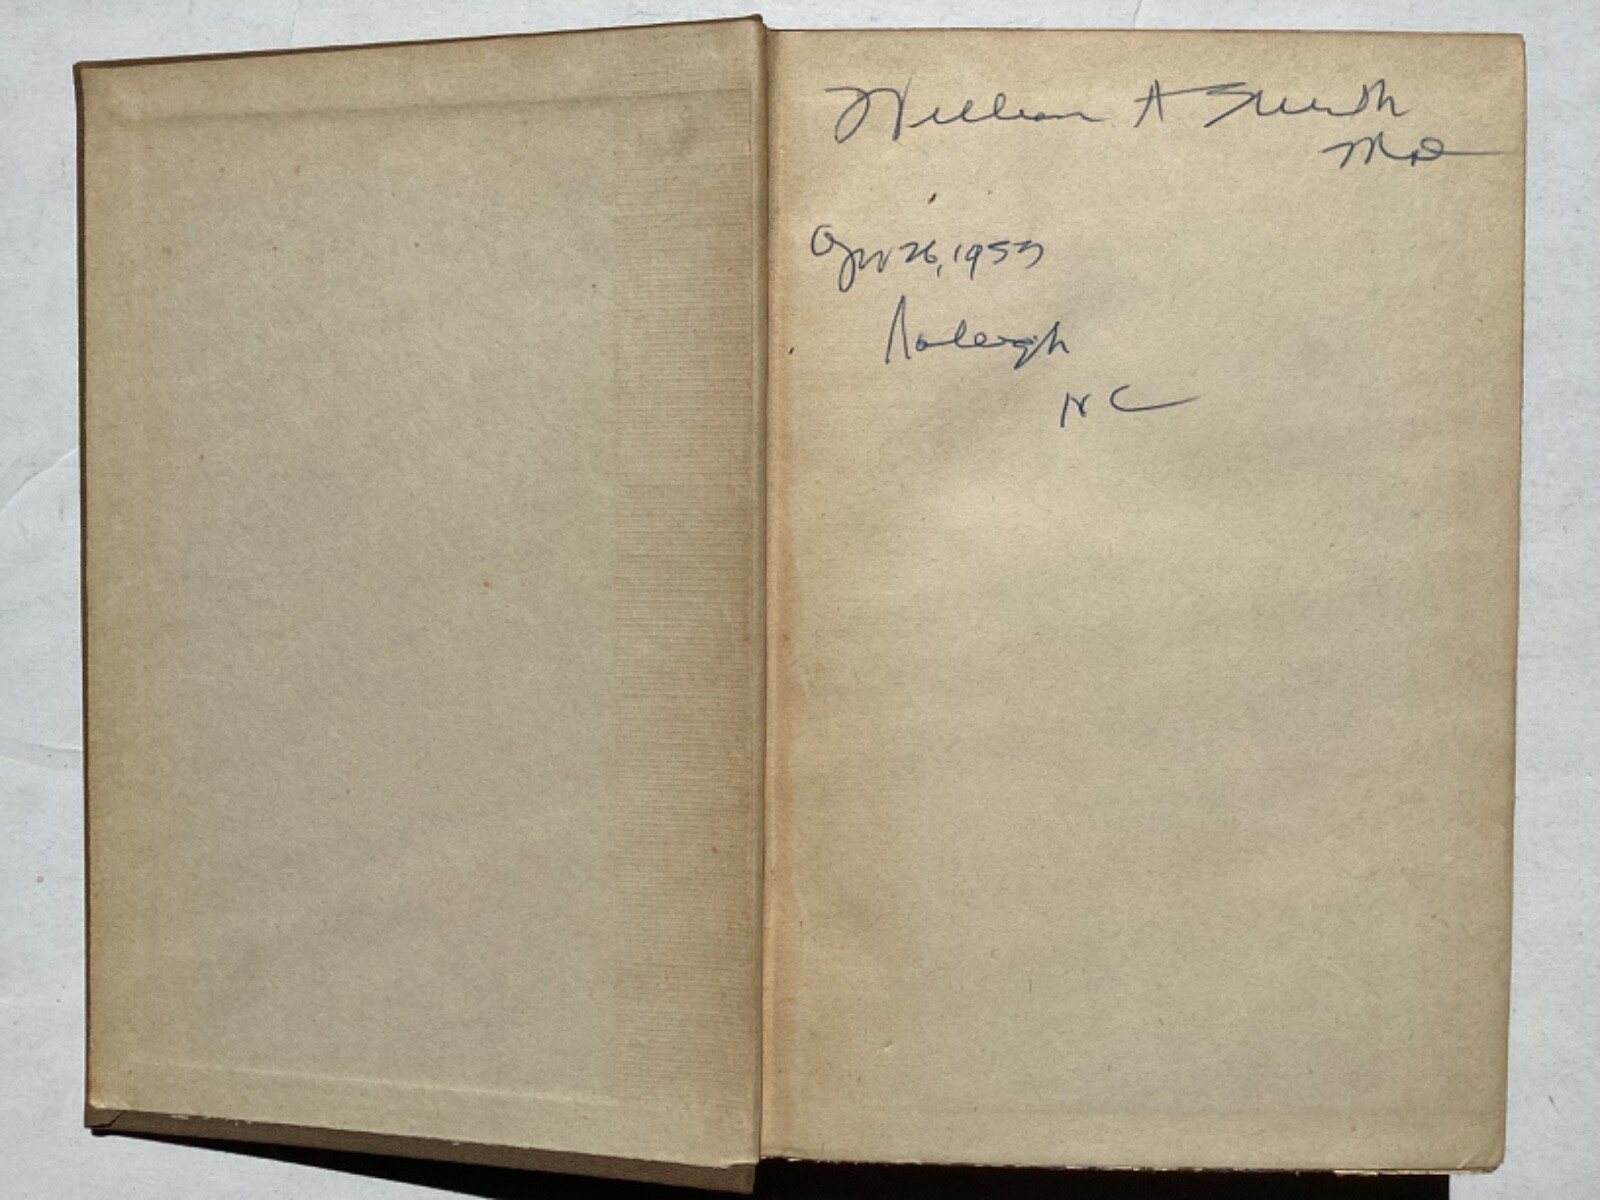 William A Smith
MD
Apr 26, 1953
Raleigh
NC